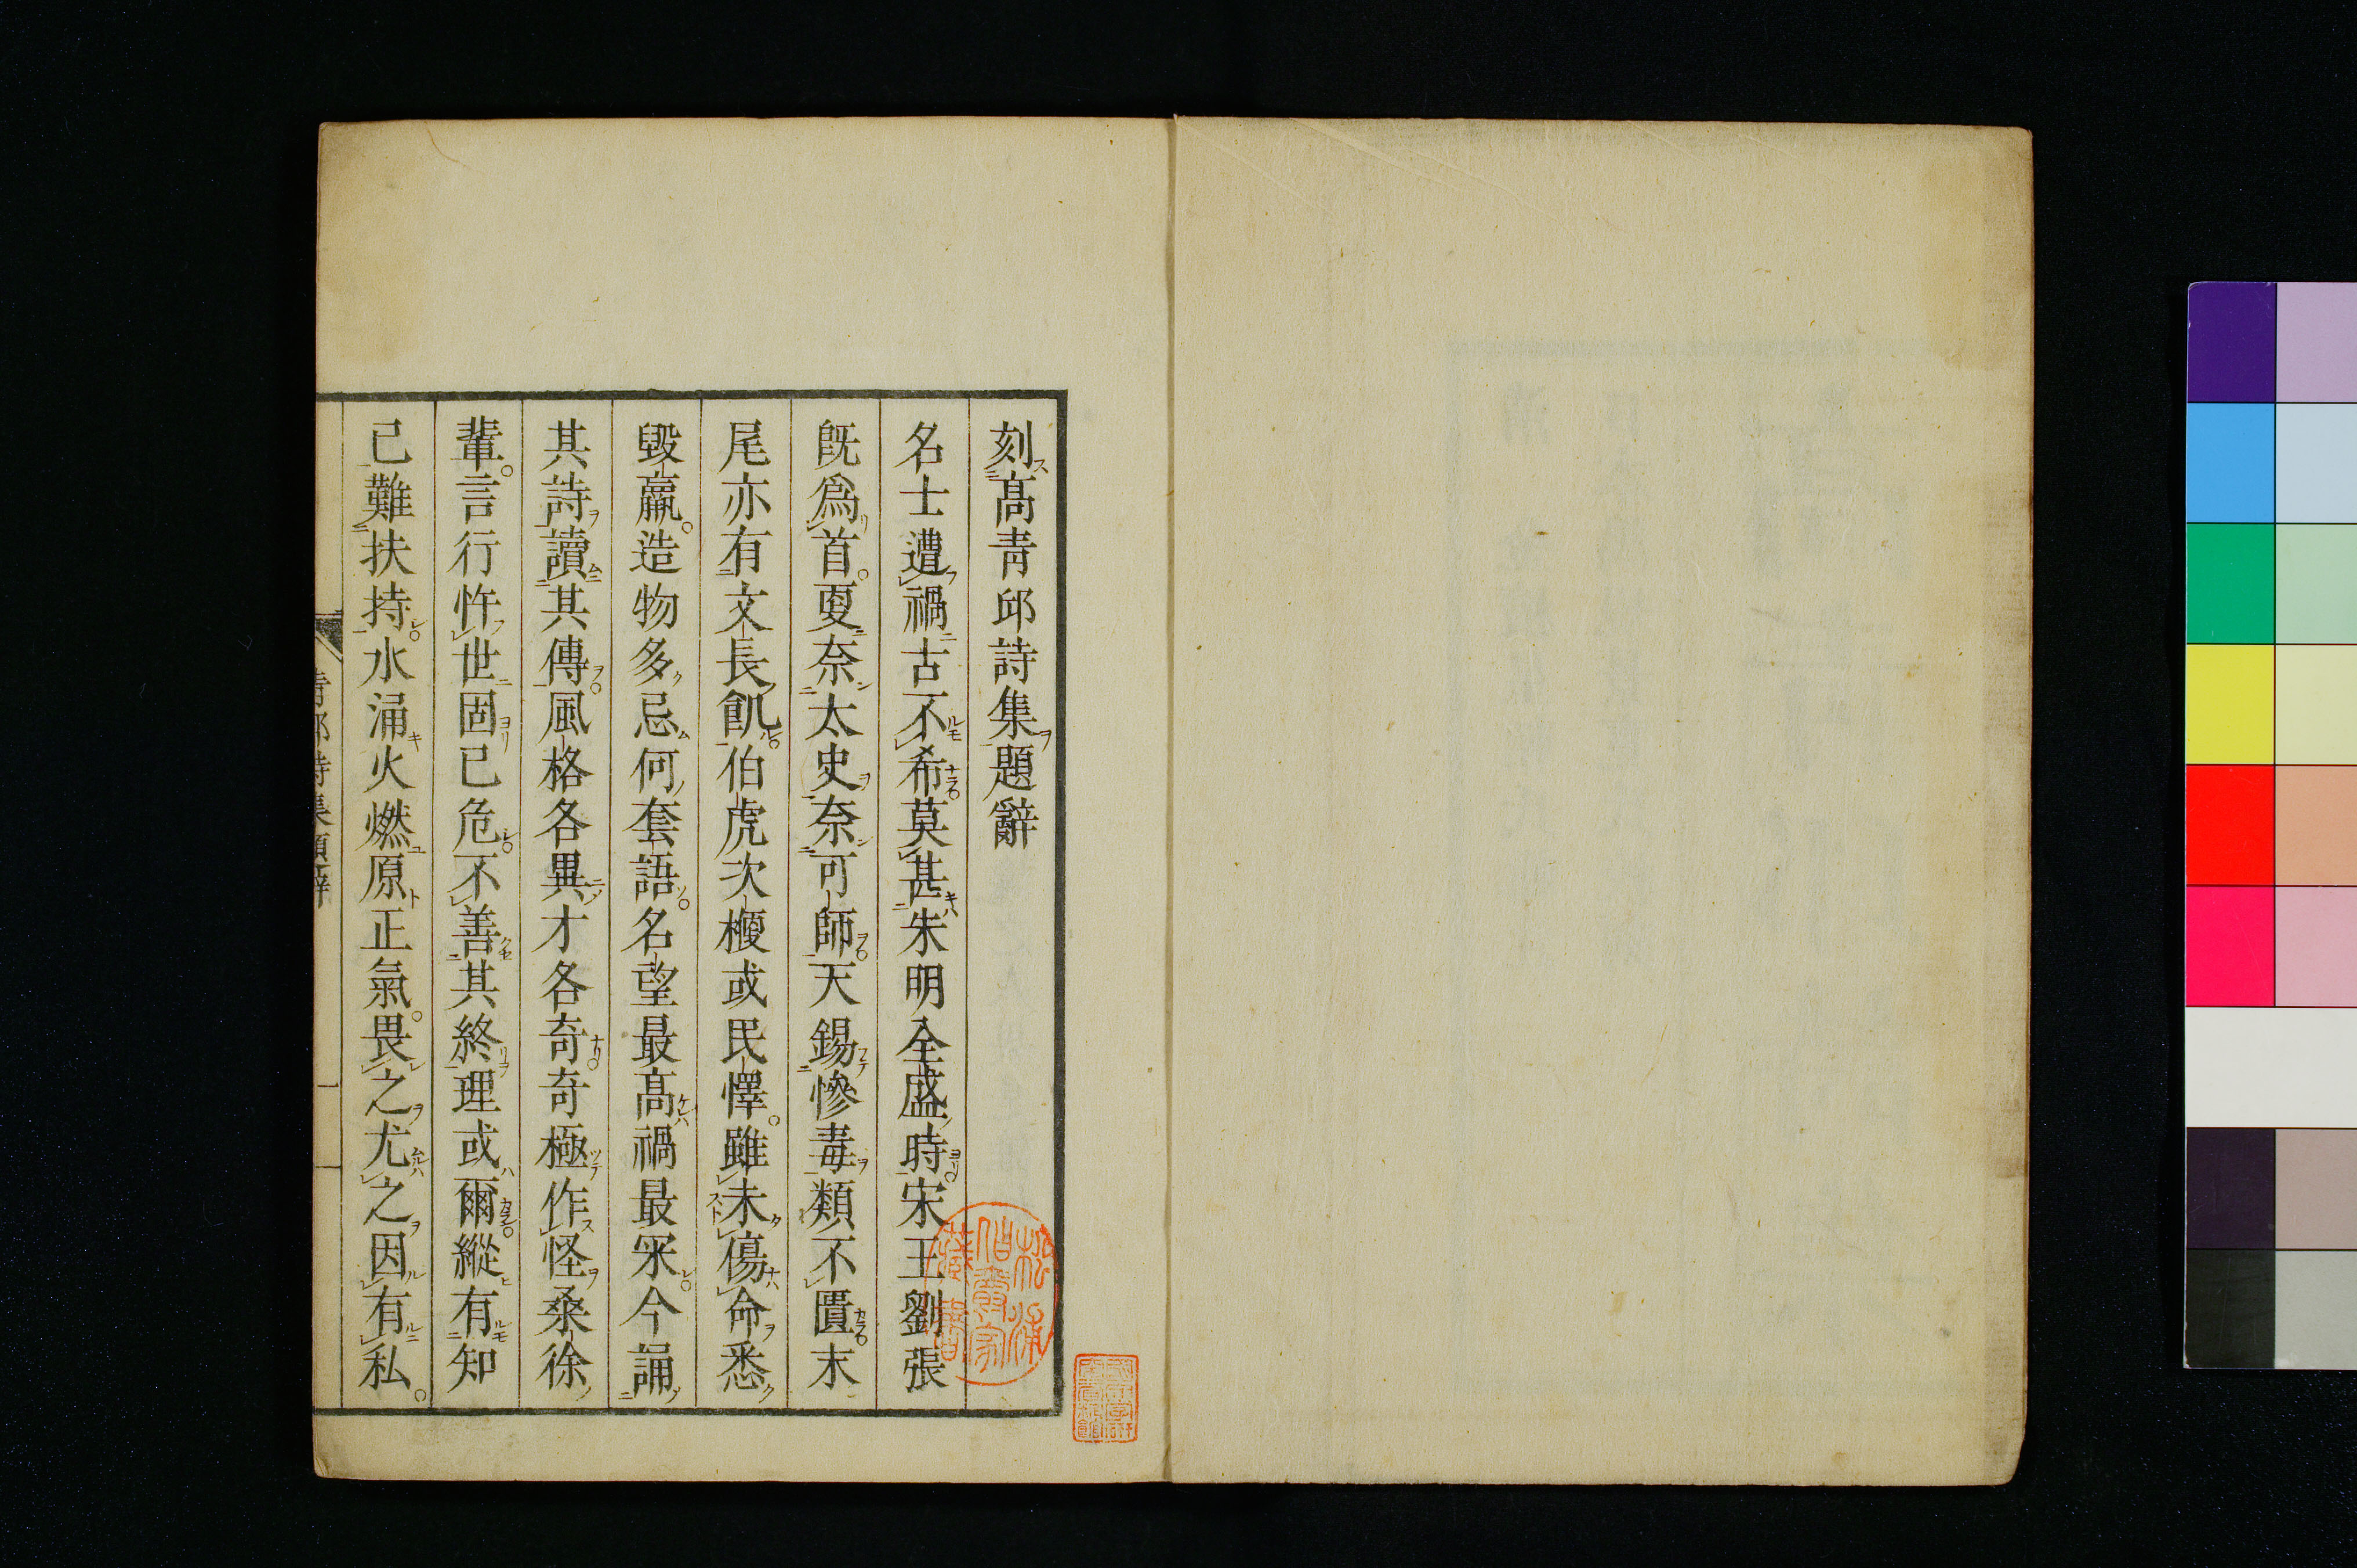 刻髙青邱詩集題辭
名士遭禍古不希莫甚朱明全盛時宋王劉張
旣爲首更奈太史奈可師天錫慘毒類不匱末
尾亦有文長飢伯虎次楩或民懌雖未傷命悉
毀羸造物多忌何套語名望最髙禍最罙今誦
其詩讀其傳風格各異才各奇奇極作怪桑徐
輩言行忤世固已危不善其終理或爾縱有知
己難扶持水涌火燃原正氣畏之尤之因有私
青邱詩集題辭
一